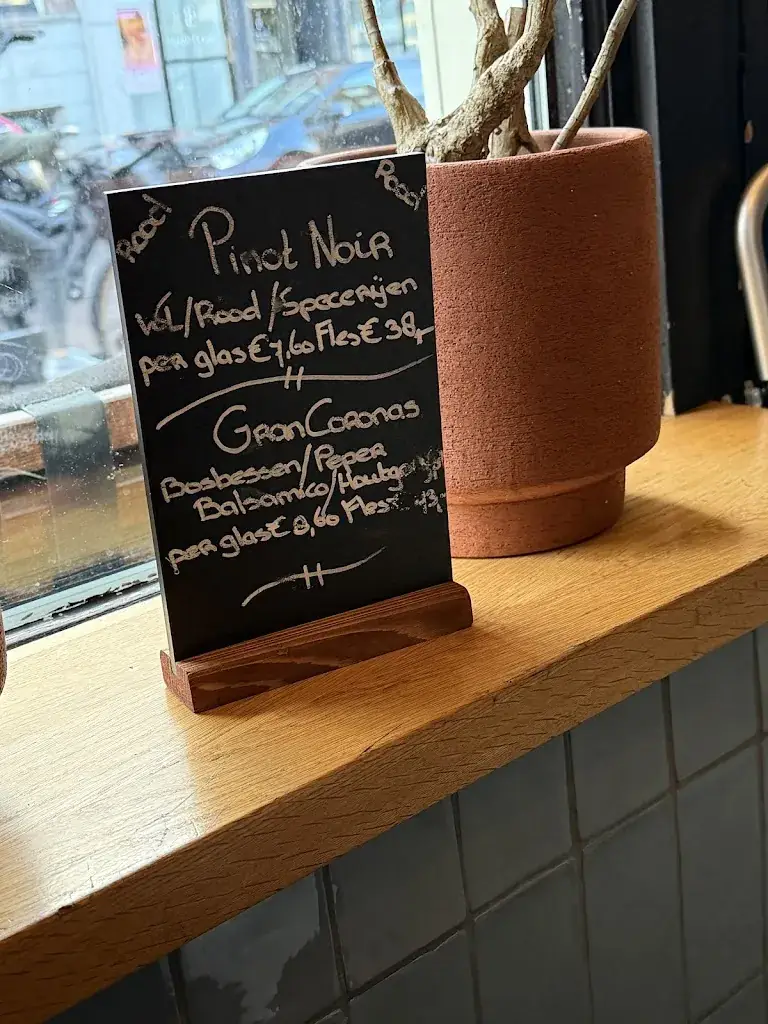 Rood
Rood
Pinot Noir
Vol/Rood/Specerijen
per glas € 7,60 Fles € 38,-
Gran Coronas
Bosbessen/Peper
Balsamico/Houtge
per glas € 8,60 Fles 43,-